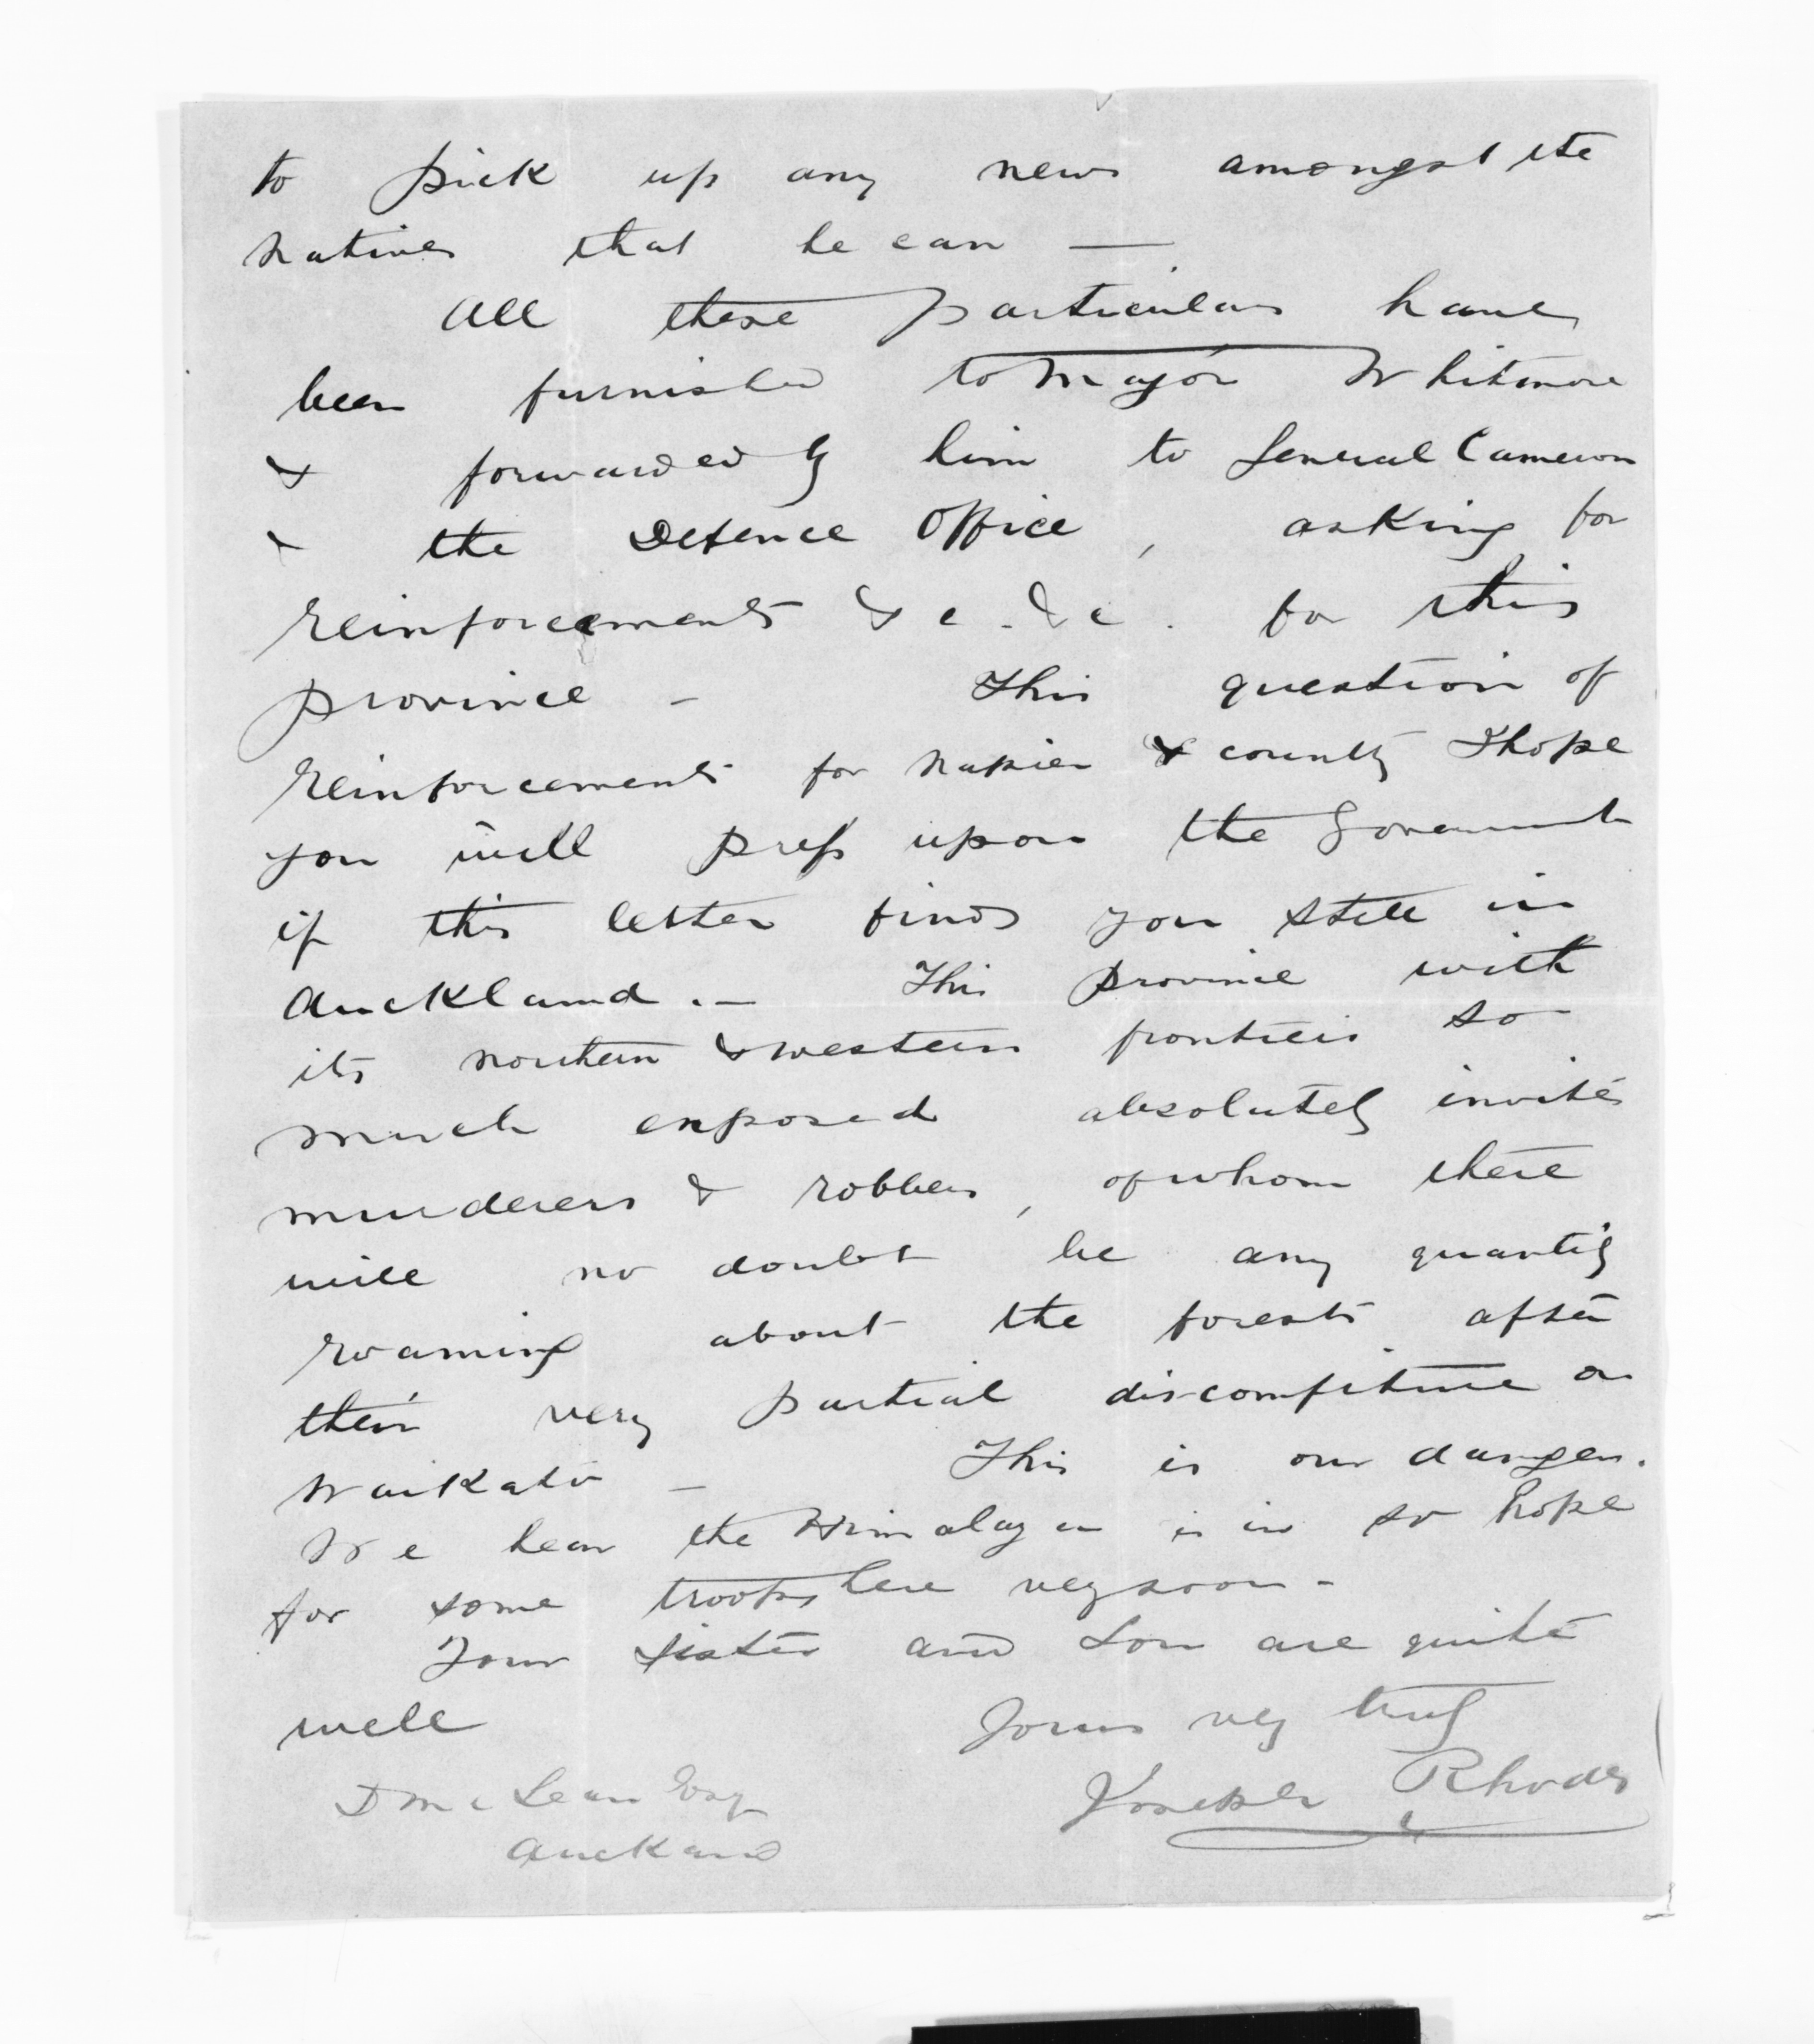 to pick up any news amongst the
natives that he can —
All these particulars have
been furnished to Major Whitmore
& forwarded by him to General Cameron
& the Defence Office, asking for
reinforcements &c. &c. for this
province - This question of
reinforcements for Napier & county I hope
you will press upon the Government
if this letter finds you still in
Auckland. — This Province with
its northern & western frontiers so
much exposed absolutely invites
murderers & robbers, of whom there
will no doubt be any quantity
roaming about the forests after
their very partial discomfiture on
Waikato - This is our danger.
We hear the Himalaya is in so hope
for some troops here very soon -
Your sister and Son are quite
well Yours very truly
Joseph Rhodes
D McLean Esq
Auckland